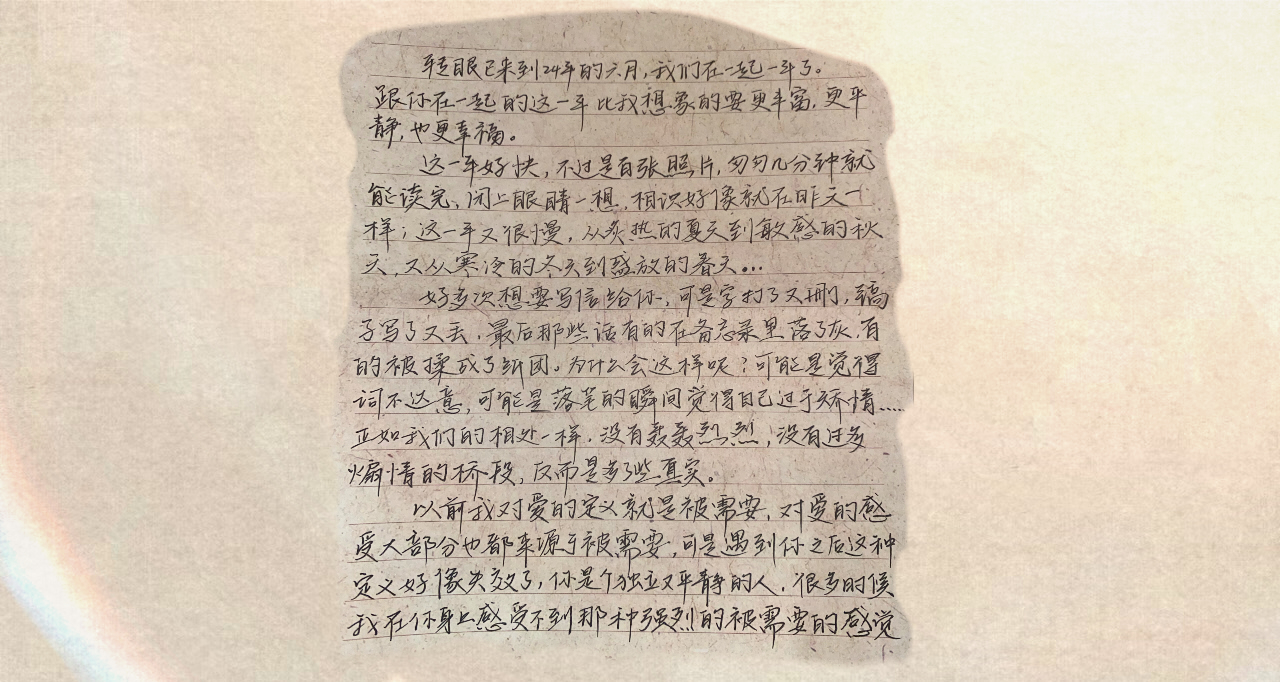 转眼已来到24年的六月，我们在一起一年了。
跟你在一起的这一年比我想象的要更丰富，更平
静，也更幸福。
这一年好快，不过是百张照片，匆匆几分钟就
能读完，闭上眼睛一想，相识好像就在昨天一
样；这一年又很慢，从炙热的夏天到敏感的秋
天，又从寒冷的冬天到盛放的春天...
好多次想要写信给你，可是字打了又删，稿
子写了又丢，最后那些话有的在备忘录里落了灰，有
的被揉成了纸团。为什么会这样呢？可能是觉得
词不达意，可能是落笔的瞬间觉得自己过于矫情……
正如我们的相处一样，没有轰轰烈烈，没有过多
煽情的桥段，反而是多了些真实。
以前我对爱的定义就是被需要，对爱的感
受大部分也都来源于被需要，可是遇到你之后这种
定义好像失效了，你是个独立又平静的人，很多时候
我在你身上感受不到那种强烈的被需要的感觉